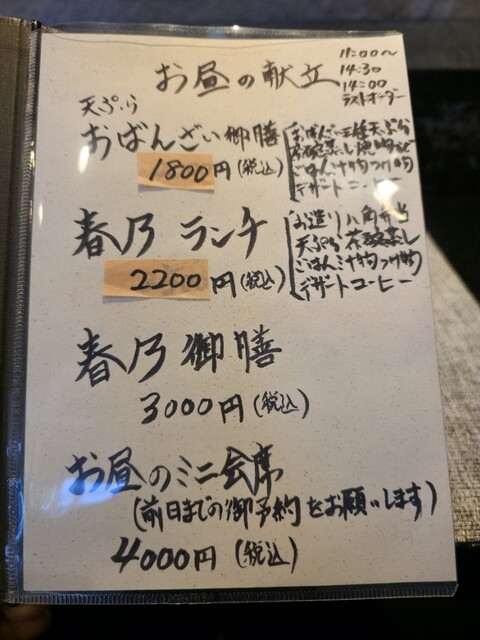 お昼の献立
11:00〜
14:30
14:00
ラストオーダー
天ぷら
おばんざい御膳
1800円(税込)
おばんざい三種天ぷら
茶碗蒸し焼物など
ごはん汁物つけ物
デザートコーヒー
春乃 ランチ
2200円(税込)
お造り八角弁当
天ぷら茶碗蒸し
ごはん汁物つけ物
デザートコーヒー
春乃御膳
3000円(税込)
お昼のミニ会席
(前日までの御予約をお願いします)
4000円(税込)